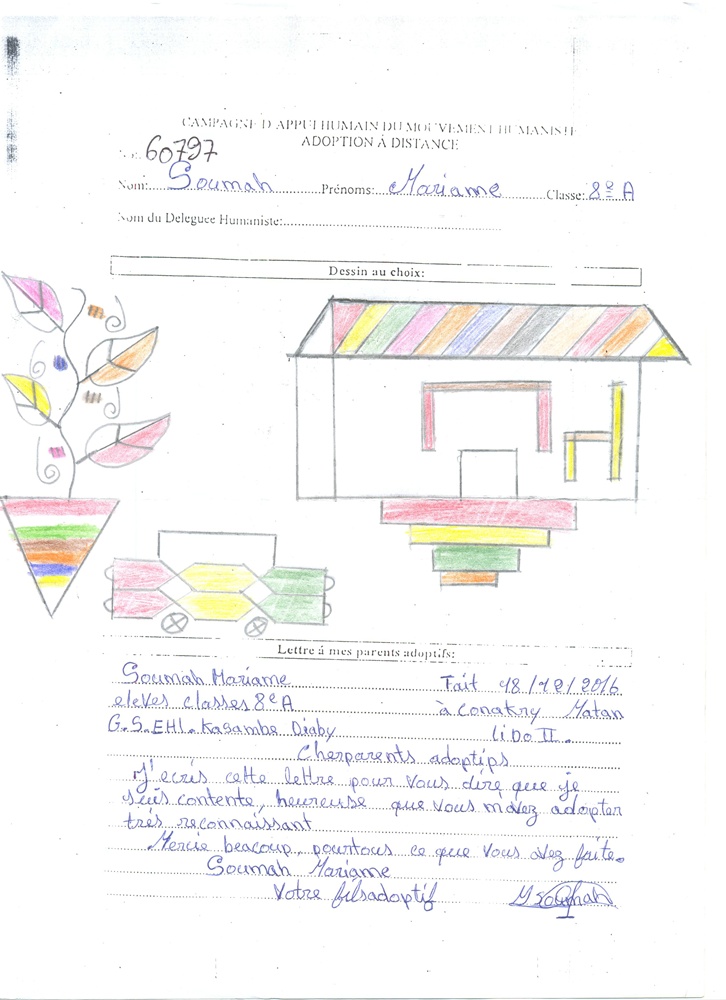 CAMPAGNE D'APPUI HUMAIN DU MOUVEMENT HUMANISTE
ADOPTION À DISTANCE
60797
Nom: Soumah Prénoms: Mariame Classe: 8e A
Nom du Deleguee Humaniste:
Dessin au choix:
Lettre á mes parents adoptifs:
Soumah Mariame Fait 18/12/2016
eleves classes 8e A à Conakry Matan
G.S.EHL. Kasambe Diaby liDo II.
Cherparents adoptips
J'ecris cette lettre pour vous dire que je
suis contente, heureuse que vous mavez adopter
trés reconnaissant
Mercie beacoup, pourtous ce que vous avez faite.
Soumah Mariame
Votre filsadoptif